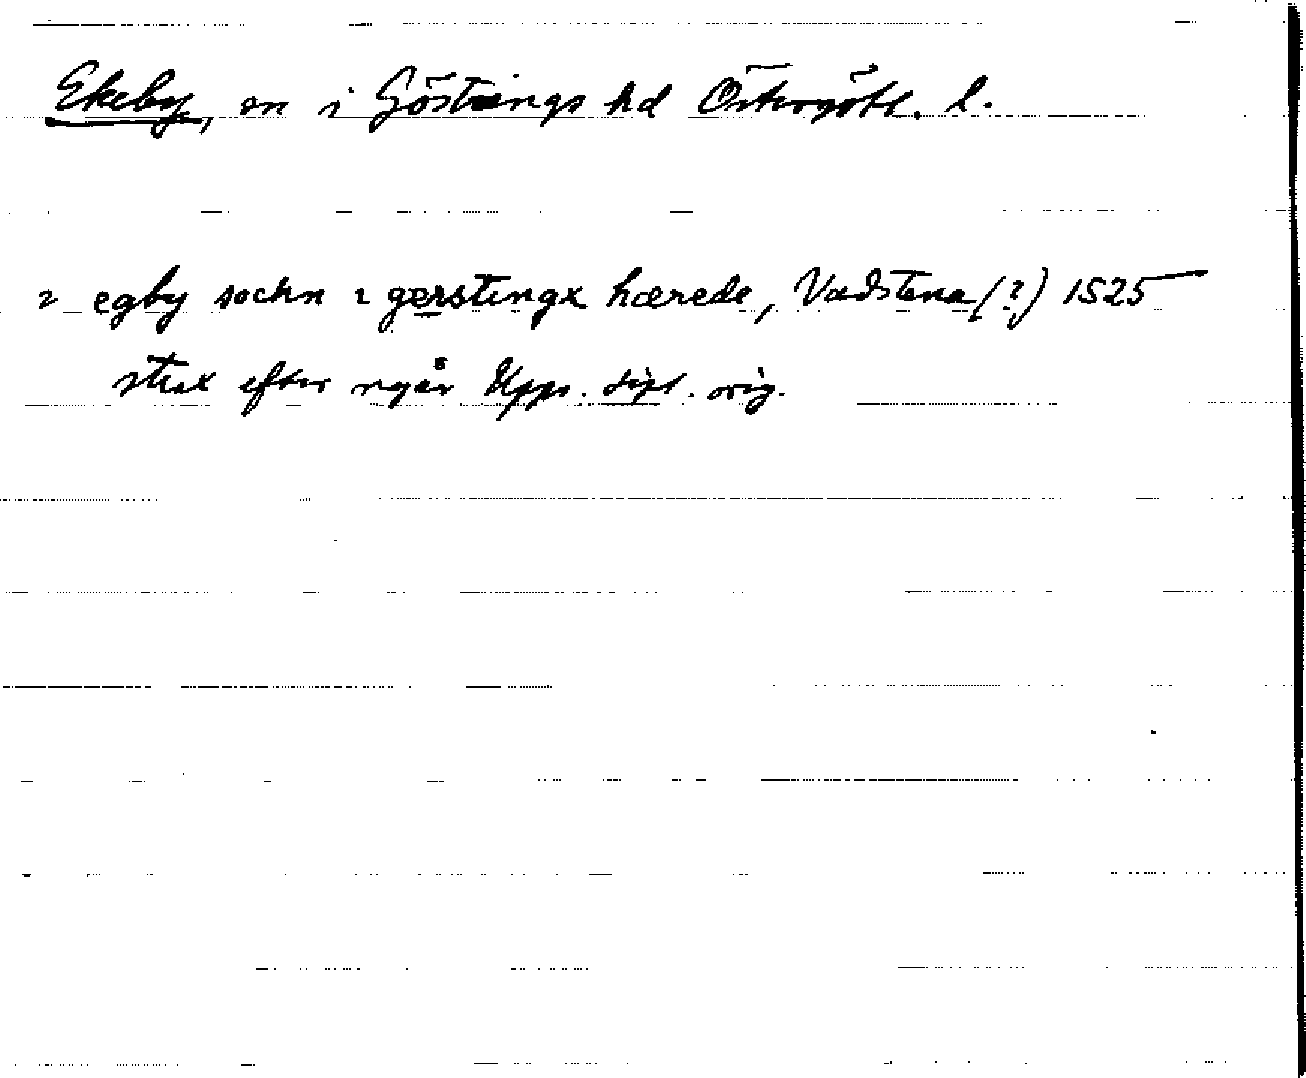 Ekeby, sn i Göstrings hd Östergötl. l.
i egby sochn i gerstingx hærede, Vadstena (?) 1525
strax efter nyår Upps. dipl. orig.